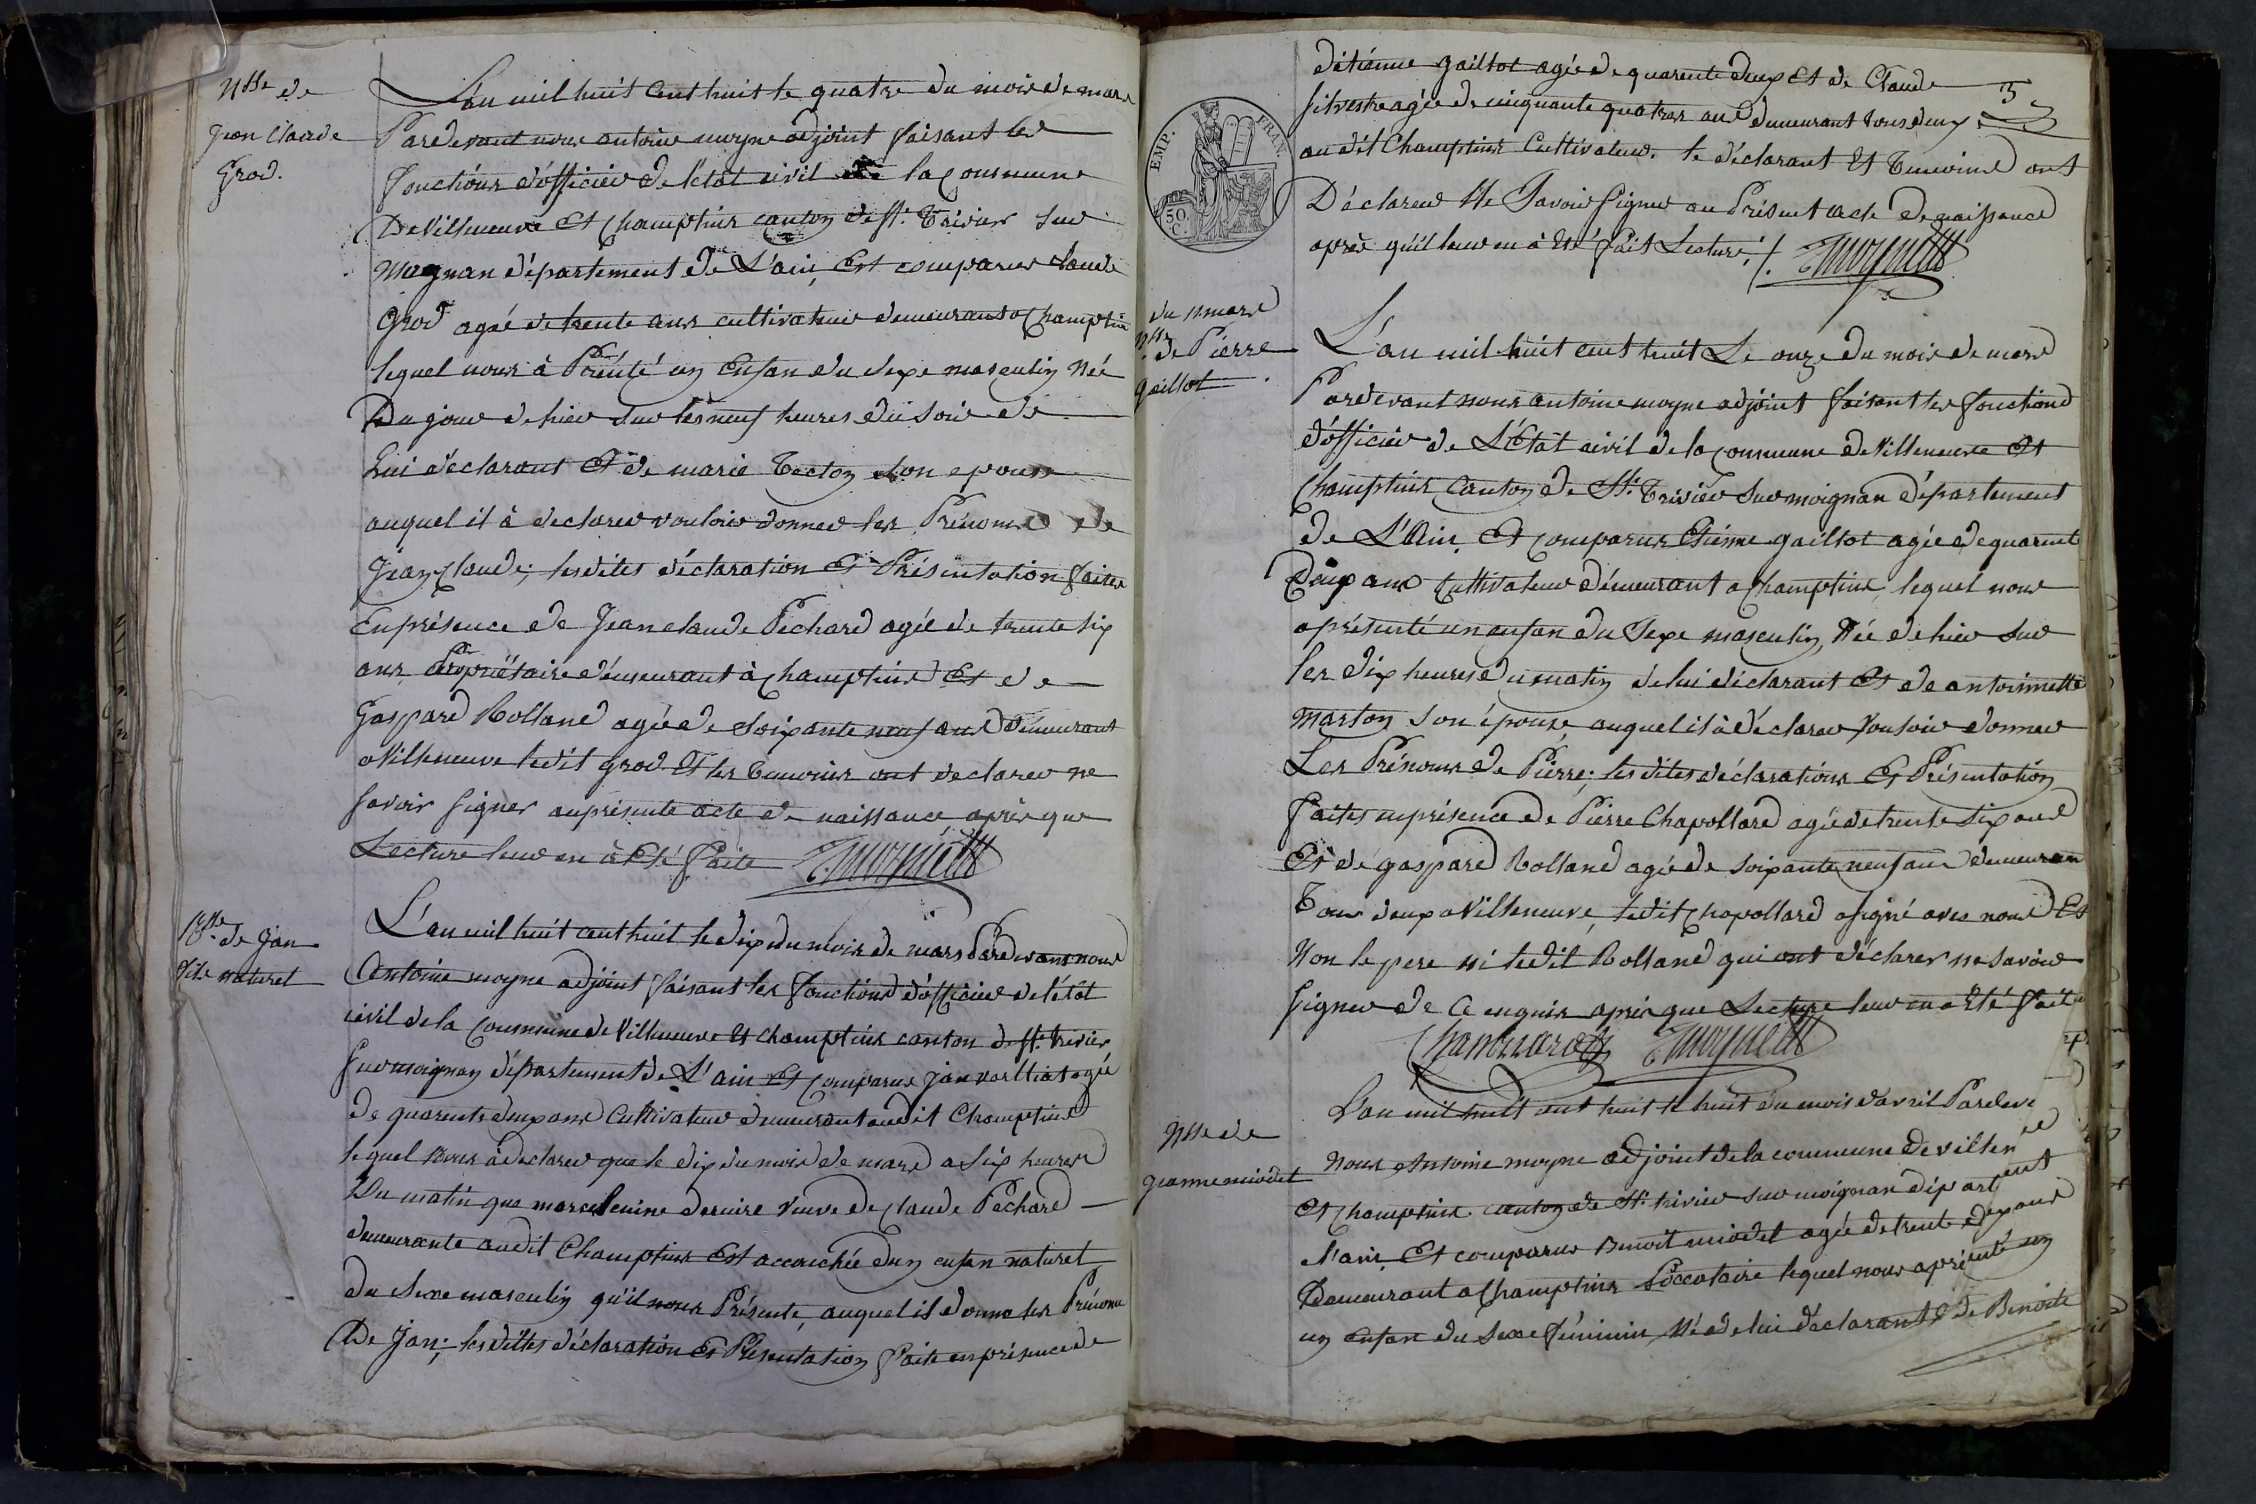 Nsse de
Jean Claude
Grod.
L'an mil huit cent huit le quatre du mois de mars
Pardevant nous antoine moyne adjoint faisant les
fonctions d'officier de l'etat civil de la commune
De Villeneuve Et Champtins canton de st. Trivier sur
Mognan département de L'ain, Est comparus Claude
Grod agée de trente ans cultivateur demeurant a Champtin
lequel nous à Présenté un Enfan du sexe masculin Née
Du jour de hier sur les neuf heures du soir de
Lui déclarant Et de marie Tecton son epouse
auquel il à declarer vouloir donner les Prénoms de
Jean Claude; lesdites déclaration Et Présentation faites
En présence de Jean claude Péchard agée de trente six
ans Propriétaire démeurant à Champtins Et de
Gaspard Rolland agée de soixante neuf ans démeurant
a Villeneuve ledit grod Et les temoins ont declarer ne
savoir signer au présente acte de naissance après que
Lecture leur en à Eté faite AMoyne adt
Nsse de Jan
fils naturel
L'an mil huit cent huit le dix du mois de mars Pardevant nous
Antoine moyne adjoint faisant les fonctions d'officier de l'état
civil de la Commune de Villeneuve Et Champtins canton de st. trivier
sur moignan département de L'ain Est comparus jan agé
de quarente deux ans Cultivateur demeurant audit Champtins
lequel nous à declarer que le dix du mois de mars a six heures
Du matin que marcelenine veuve de Claude Péchard
demeurante audit Champtins Est accouchée d'un enfan naturel
du sexe masculin qu'il nous Présente, auquel il donne les Prénoms
De Jan; lesdittes déclaration Et Présentation faite en présence de
3
EMP. FRAN.
50 C.
d'étiénne gaillot agée de quarente deux Et de Claude
silvestre agée de cinquante quatres ans demeurant tous deux
au dit Champtins Cultivateur. le déclarant Et Temoins ont
Déclarer Ne Savoir signer au Présent acte de naissance
après qu'il leur en à Eté fait Lecture ./. AMoyne adt
du 11 mars
Nsse de Pierre
gaillot
L'an mil huit cent huit Le onze du mois de mars
Pardevant nous antoine moyne adjoint faisant les fonctions
d'officier de L'Etat civil de la Commune de Villeneuve Et
Champtins Canton de St. Trivier sur moignan département
de L'Ain, Est Comparus Etiénne gaillot agée de quarente
Deux ans Cultivateur démeurant a Champtins, lequel nous
a présenté un enfan du Sexe masculin, Née de hier sur
les dix heures du matin de lui déclarant Et de antoinnette
marton son épouse, auquel il à déclarer vouloir donner
Les Prénoms de Piérre; lesdites déclarations Et Présentation
faites en présence de Piérre Chapollard agée de trente six ans
Et de gaspard Rolland agée de soixante neuf ans demeuran
Tous deux a Villeneuve, ledit Chapollard a signé avec nous Et
Non le pere ni ledit Rolland qui ont déclarer ne savoir
signer de Ce enquis après que Lecture leur en a Eté faite
AMoyne adt
Nsse de
jeanne miodet
L'an mil huit cent huit le huit du mois d'avril Pardeve
nous Antoine moyne adjoint de la commune de villen
Et Champtins canton de St. trivier sur moignan département
l'ain, Est comparus Benoit miodet agée de trente deux ans
Demeurant a Champtins Loccataire lequel nous a présenté un
un enfan du sexe féminin, Né de lui déclarant & de Benoite